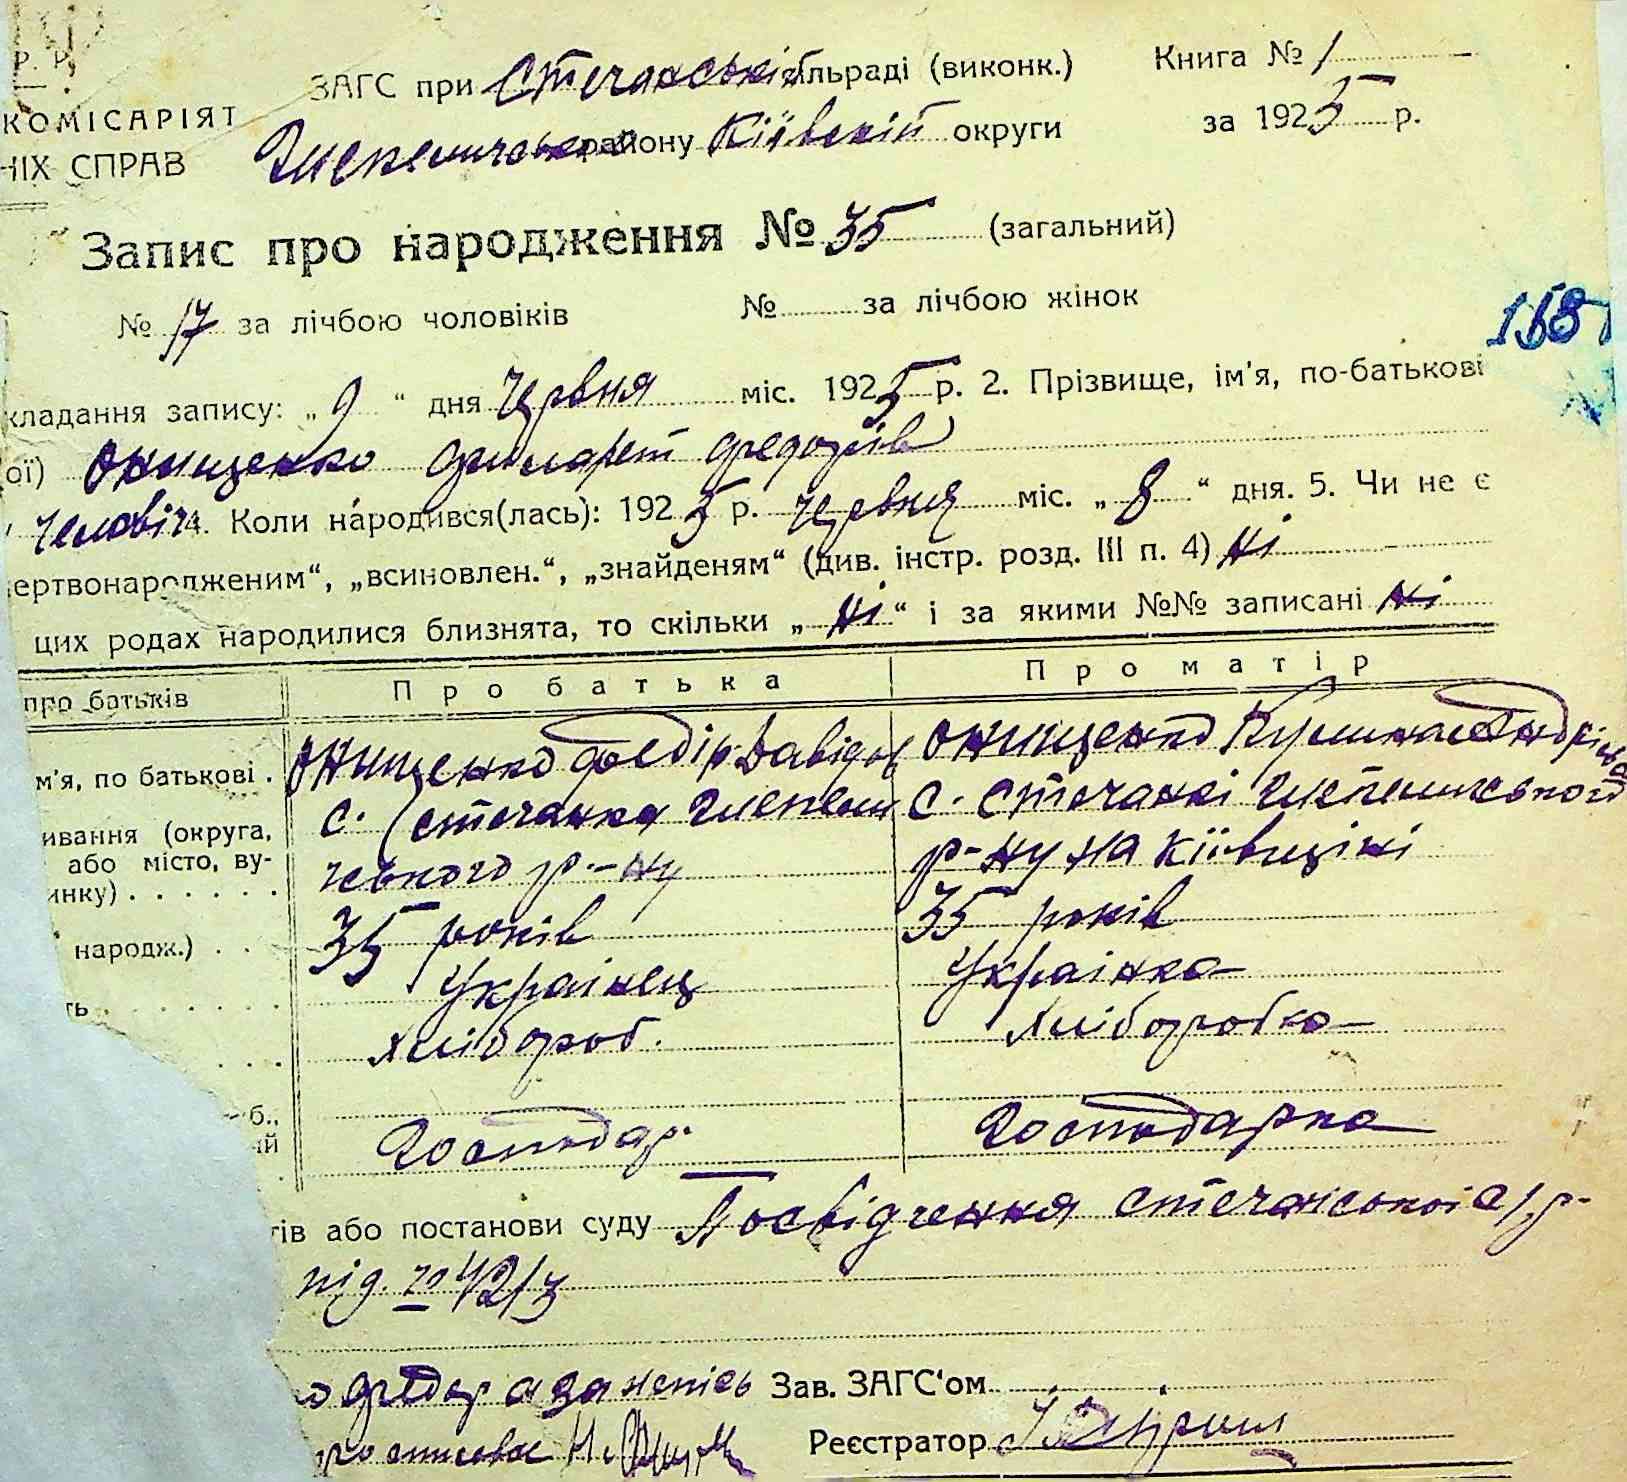 Р. Р.
ЗАГС при Стечанській сільраді (виконк.) Книга № 1
КОМІСАРІЯТ
НІХ СПРАВ
району Київскій округи за 1925 р.
Запис про народження № 35 (загальний)
№ 17 за лічбою чоловіків № за лічбою жінок
158
кладання запису: „ 9 “ дня червня міс. 1925 р. 2. Прізвище, ім'я, по-батькові
ої) Онищенко Филарет Федорів
Чоловіч 4. Коли народився(лась): 1925 р. червня міс. „ 8 “ дня. 5. Чи не є
ертвонародженим“, „всиновлен.“, „знайденям“ (див. інстр. розд. III п. 4) ні
цих родах народилися близнята, то скільки „ ні “ і за якими №№ записані ні
про батьків Про батька Про матір
м'я, по батькові . Онищенко Федір Давидов Онищенко Кулина Андріівна
ивання (округа, с. Стечанка с. Стечанкі
або місто, ву-
инку) . . . . . . чського р-ну р-ну на Київщіні
народж.) . . 35 років 35 років
ть . . . . . . . Українец Українка
Хлібороб. Хліборобка
б.,
ий Господар. Господарка
тів або постанови суду Посвідчення Стечанськоі с/р-
під. № 42/3
Федор а за
Зав. ЗАГС'ом
Реєстратор